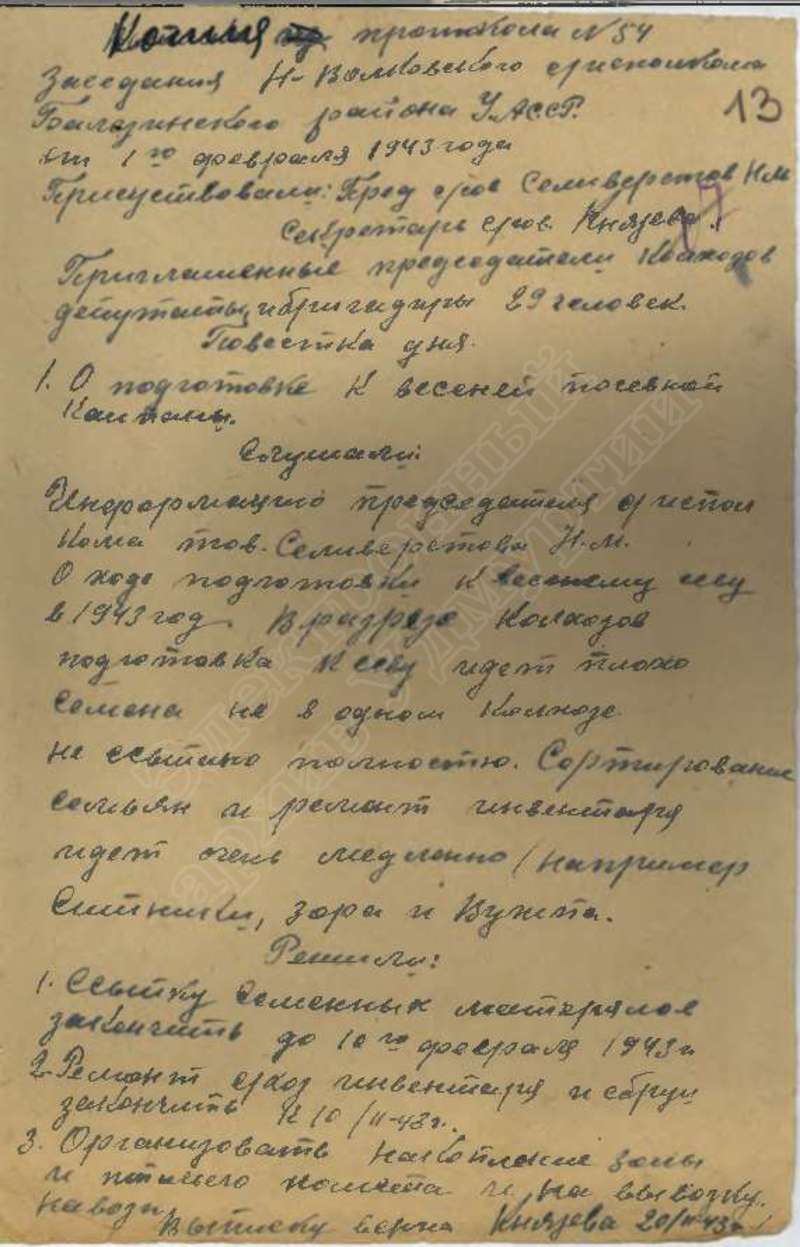 Копия протокола N 54
заседания Н-Волковского с/исполкома
Балезинского района УАССР.
от 1го февраля 1943 года
13
Присуствовали: Пред с/сов Селиверстов Н.М
Секретарь с/сов. Князева.
Приглашенные председатели Колхозов
депутаты, и бригадиры 29 человек.
Повестка дня.
1. О подготовке к весеней посевной
Кампаны.
Слушали:
Информацию председателя с/испол
кома тов. Селиверстова Н.М.
О ходе подготовки к весенему севу
в 1943 год. В разрезе Колхозов
подготовка к севу идет плохо
Семена не в одном Колхозе
не ссыпано полностю. Сортирование
семьян и ремонт инвентаря
идет очень медленно /например
Ситники, Зора и
Решили:
1. Ссыпку Семенных матерялов
закончить до 10го февраля 1943 г.
2. Ремонт с/хоз инвентаря и сбруи
закончить К 10/II-43г.
3. Организовать накопление золы
и птичего помета и на вывозку.
навозу.
Выписку верна Князева 20/II-43г.